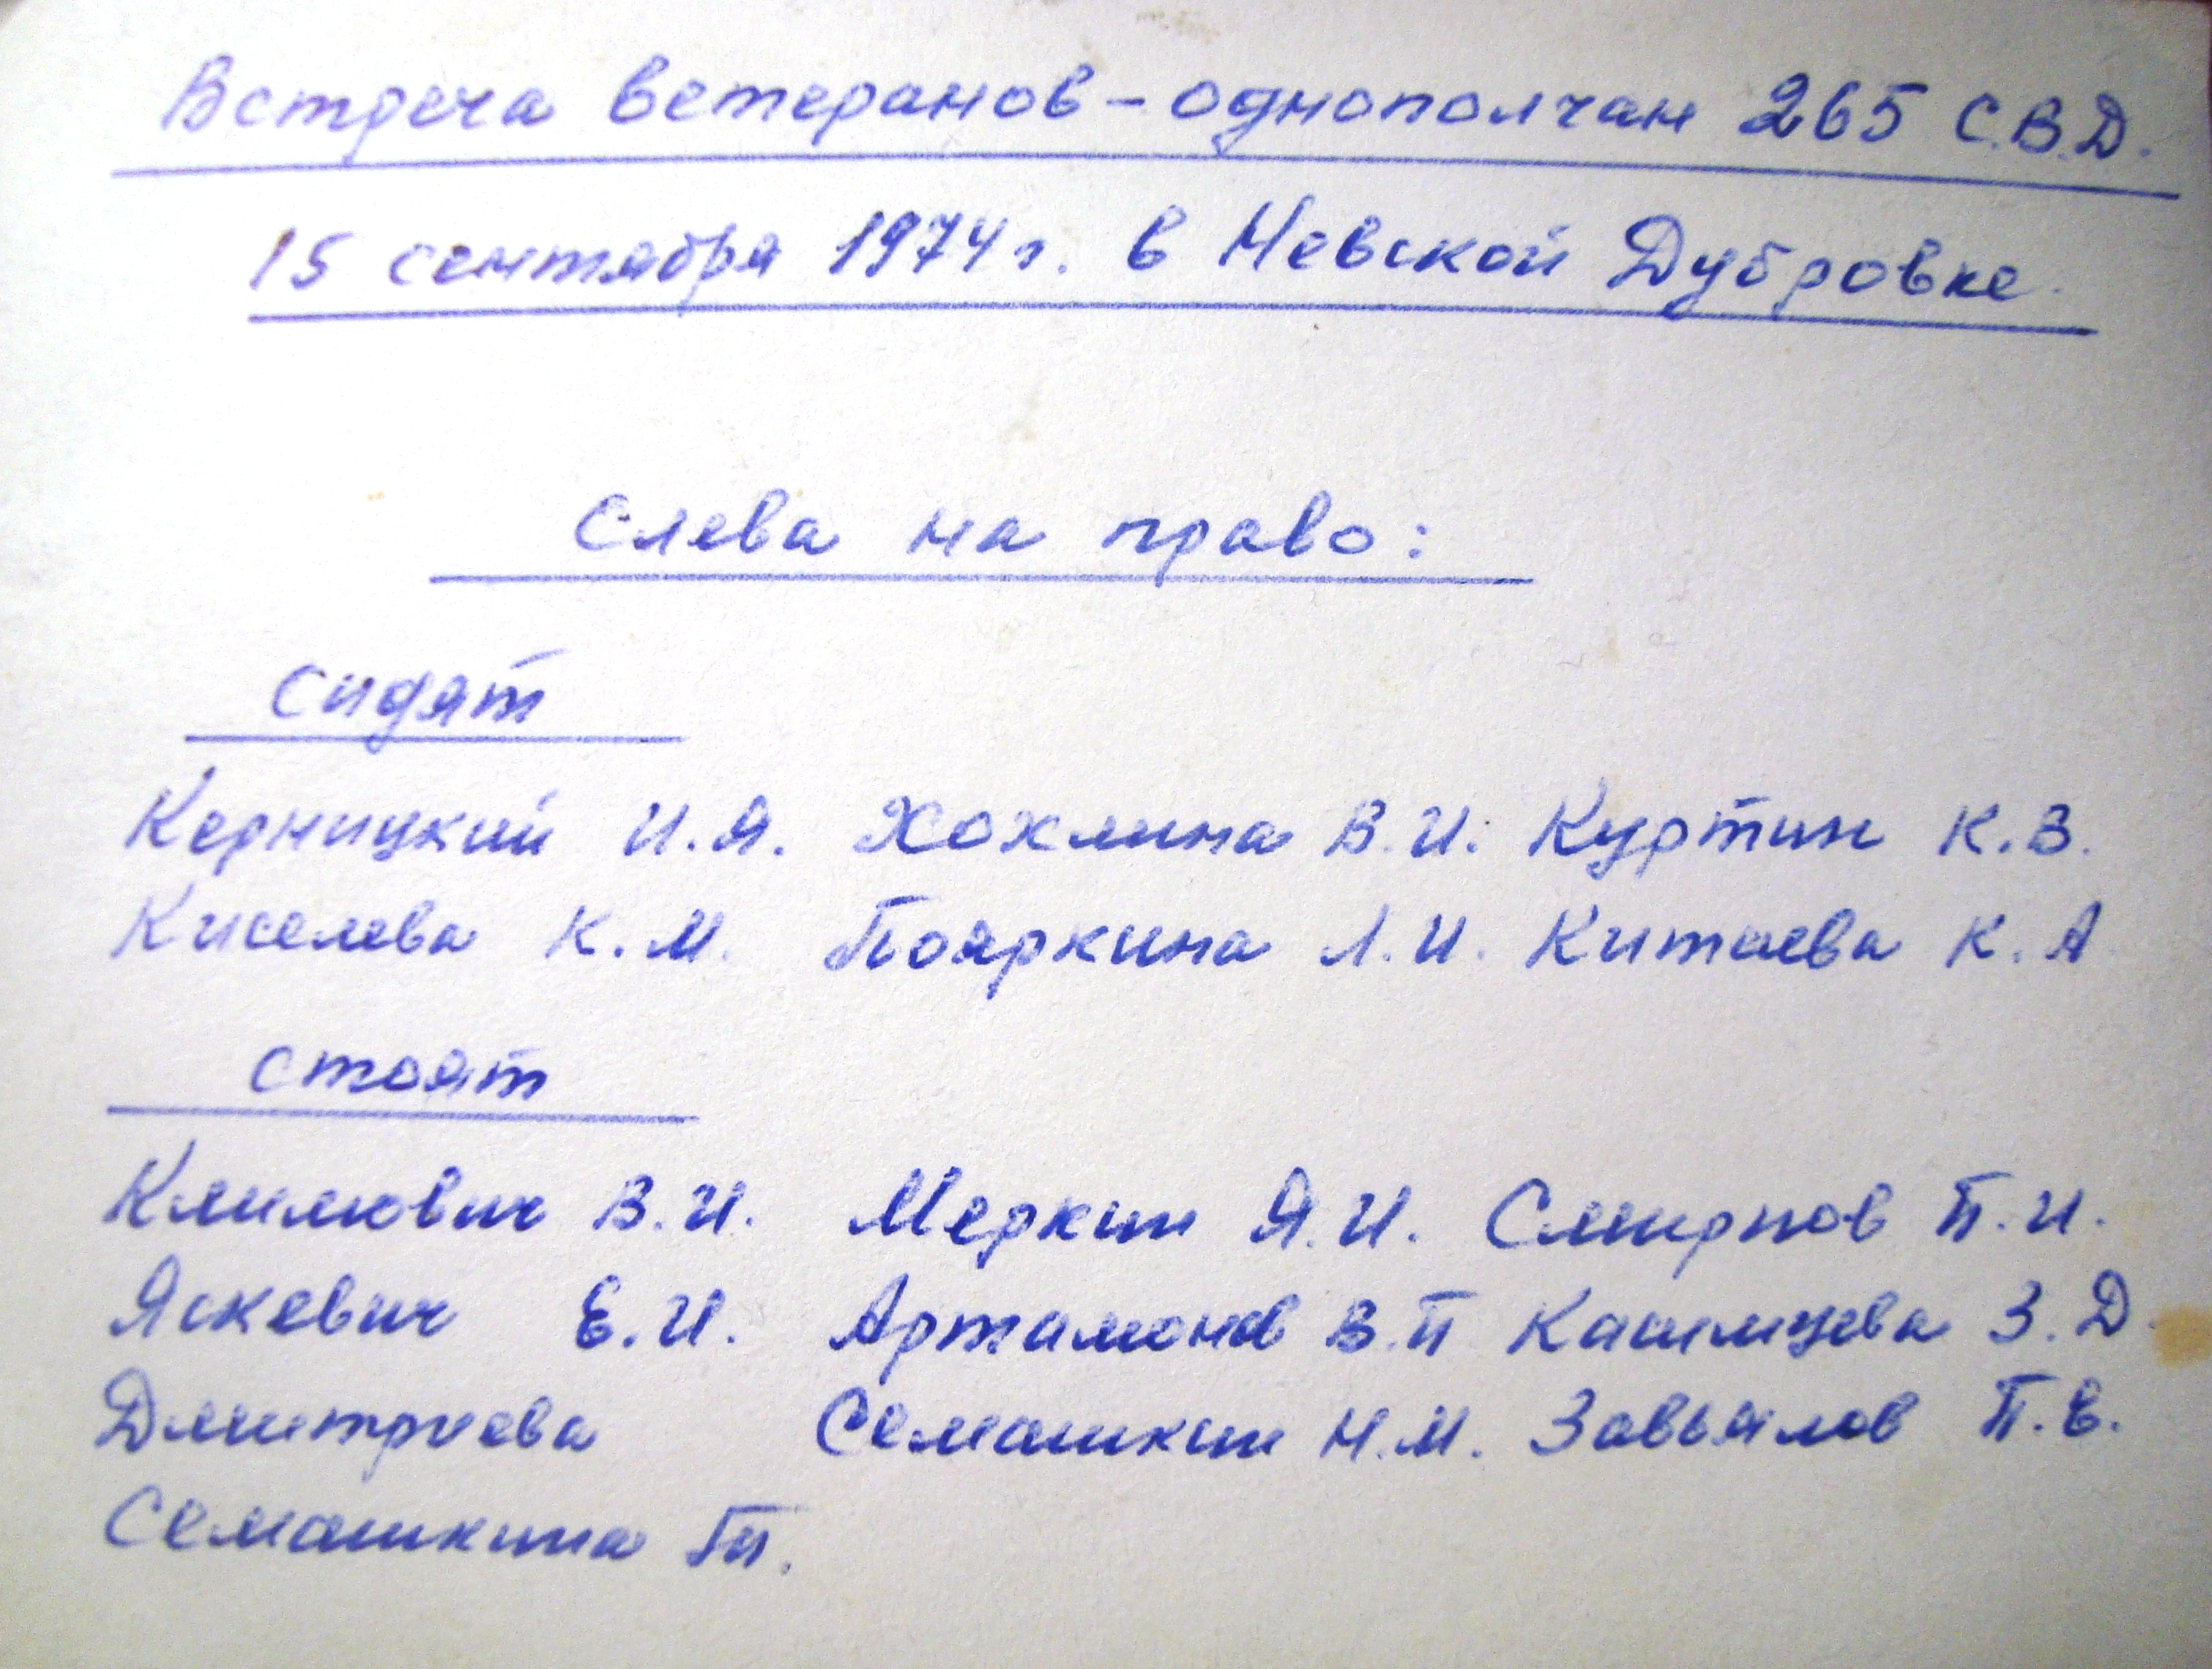 Встреча ветеранов-однополчан 265 С.В.Д.
15 сентября 1974 г. в Невской Дубровке.
Слева на право:
сидят
Керницкий И.Я. Хохлина В.И. Куртин К.В.
Киселева К.М. Пояркина Л.И. Китаева К.А
стоят
Климович В.И. Меркин Я.И. Смирнов П.И.
Яскевич Е.И. Артамонов В.П З.Д
Дмитриева Семашкин Н.М. Завьялов П.Е.
Семашкина